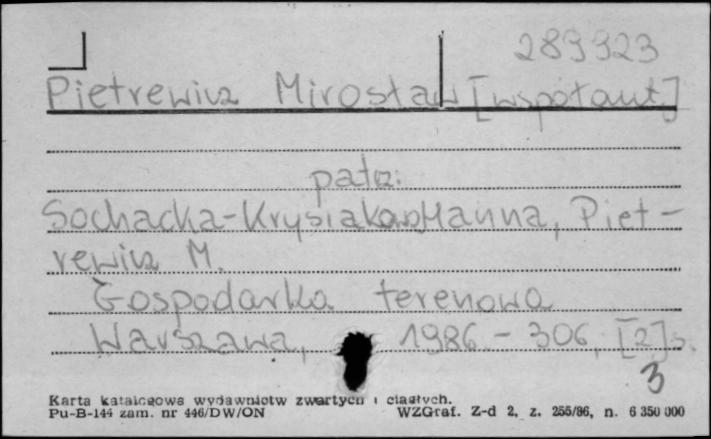 289923
Pietrewicz Mirosław [współaut]
patrz:
Sochacka-Krysiakowa Hanna, Piet-
rewicz M.
Gospodarka terenowa
Warszawa, 1986 - 306, [2] s.
3
Karta katalogowa wydawnictw zwartych i ciągłych.
Pu-B-144 zam. nr 446/DW/ON WZGraf. Z-d 2, z. 255/86, n. 6 350 000